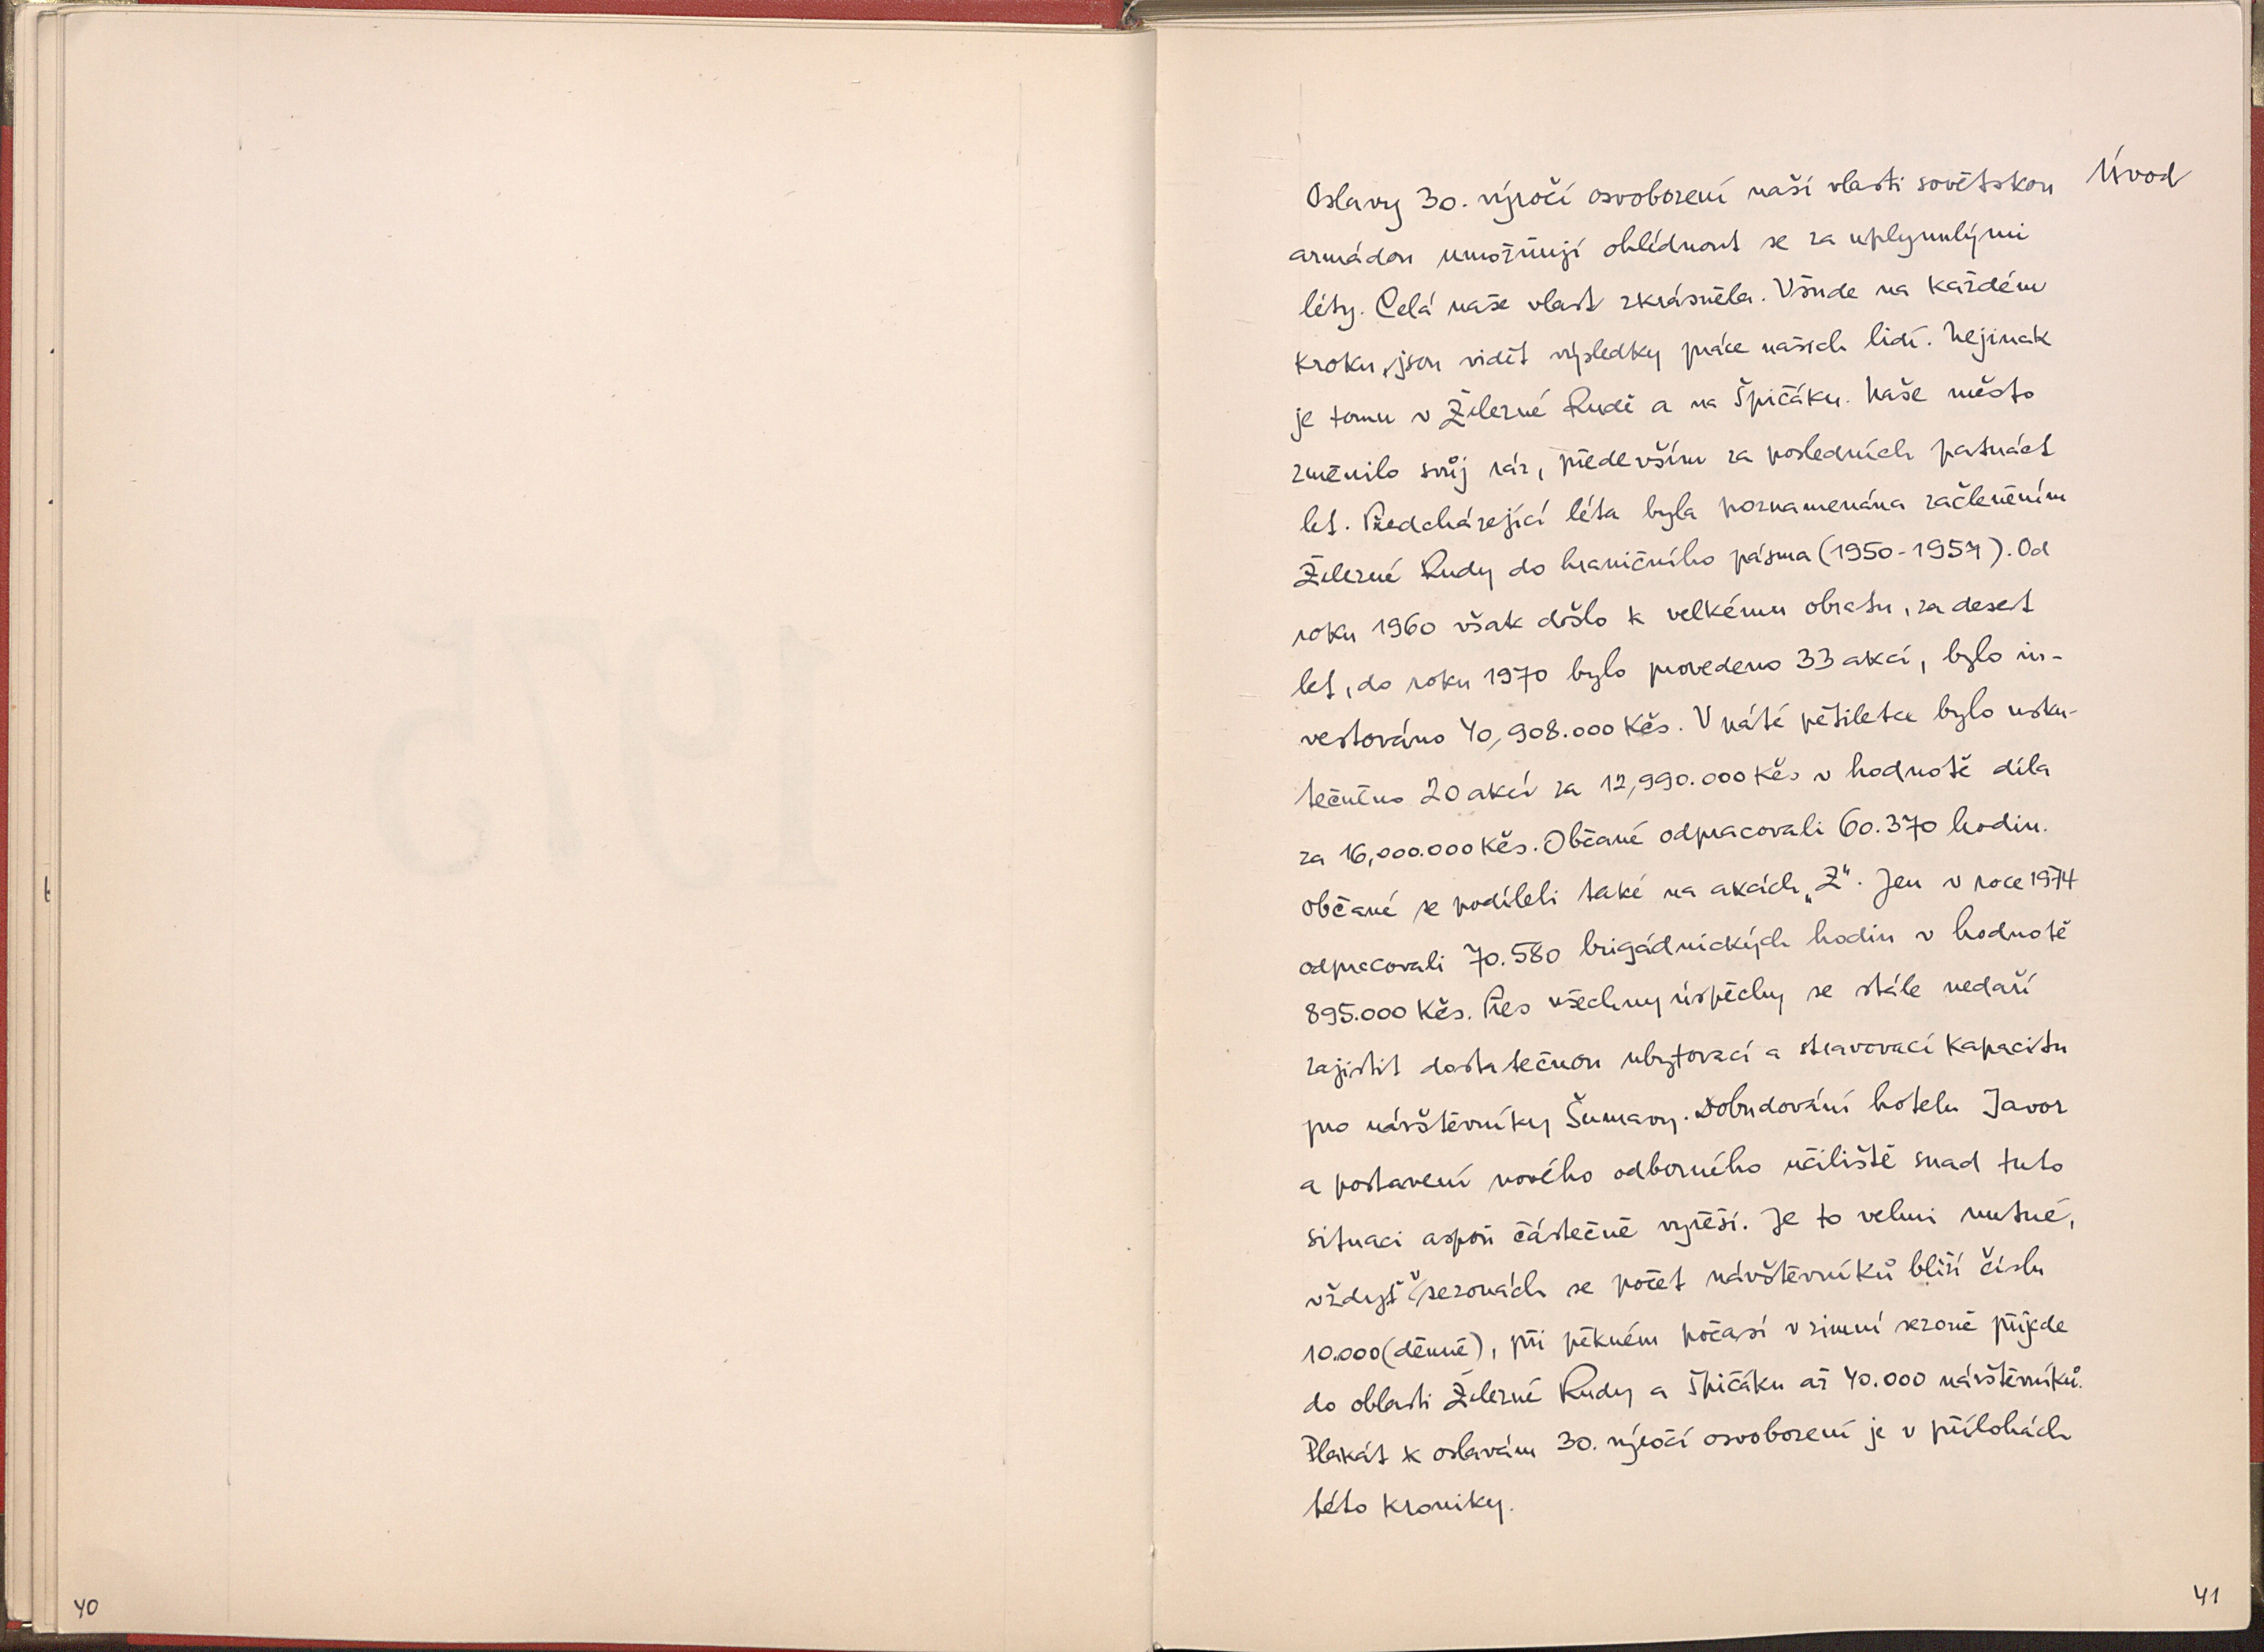 40
Úvod
Oslavy 30. výročí osvobození naší vlasti sovětskou
armádou umožňují ohlédnout se za uplynulými
léty. Celá naše vlast zkrásněla. Všude na každém
kroku, jsou vidět výsledky práce našich lidí. Nejinak
je tomu v Železné Rudě a na Špičáku. Naše město
změnilo svůj ráz, především za posledních patnáct
let. Předcházející léta byla poznamenána začleněním
Železné Rudy do hraničního pásma (1950-1957). Od
roku 1960 však došlo k velkému obratu, za deset
let, do roku 1970 bylo provedeno 33 akcí, bylo in-
vestováno 40,908.000 Kčs. V páté pětiletce bylo usku-
tečněno 20 akcí za 12,990.000 Kčs v hodnotě díla
za 16,000.000 Kčs. Občané odpracovali 60.370 hodin.
Občané se podíleli také na akcích „Z“. Jen v roce 1974
odpracovali 70.580 brigádnických hodin v hodnotě
895.000 Kčs. Přes všechny úspěchy se stále nedaří
zajistit dostatečnou ubytovací a stravovací kapacitu
pro návštěvníky Šumavy. Dobudování hotelu Javor
a postavení nového odborného učiliště snad tuto
situaci aspoň částečně vyřeší. Je to velmi nutné,
vždyť v sezonách se počet návštěvníků blíží číslu
10.000 (denně), při pěkném počasí v zimní sezoně přijede
do oblasti Železné Rudy a Špičáku až 40.000 návštěvníků.
Plakát k oslavám 30. výročí osvobození je v přílohách
této kroniky.
41